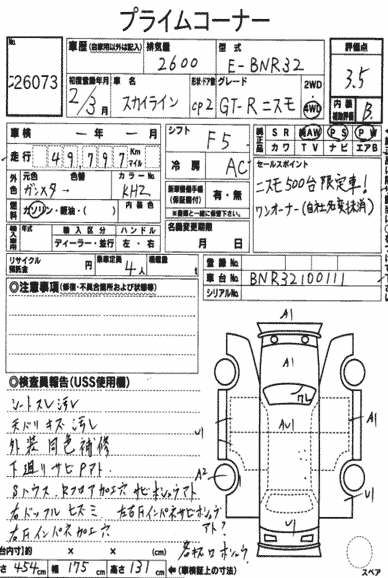 プライムコーナー
No.
26073
車歴 (自家用以外は記入)
排気量
型式
評価点
2600
E-BNR32
3.5
初度登録年月
車名
形状ドア数
グレード
2WD
4WD
2/3月
スカイライン
cp2
GT-R ニスモ
内装
補助評価
B
車検 ー 年 ー 月
シフト
F5
純正品
SR AW PS PW
カワ TV ナビ エアB
走行 49797 Km マイル
冷房
AC
セールスポイント
ニスモ500台限定車!
ワンオーナー(自社名変抹済)
外色
元色
色替
カラーNo.
ガンメタ→
KH2
燃料
ガソリン・軽油・( )
内装色
新車整備手帳
(保証書付)
有・無
※書類と一緒に保管下さい。
輸入車用
年式
輸入区分
ハンドル
ディーラー・並行
左・右
名義変更期限
月 日
リサイクル預託金
円
乗車定員
4人
積載量
t
登録No.
車台No.
BNR32100111
シリアルNo.
◎注意事項 (修復・不具合箇所および状態等)
◎検査員報告(USS使用欄)
シートスレ汚レ
天ドリキズ汚レ
外装同色補修
下廻リサビPアト
Sトウス,Rフロア加工穴 サビホシュウアト
右ドックル ヒズミ
右Fインパネ加工穴
A1
A1
クレ
AU1
U1
A1
A2
U1
U1
(cm)
長さ 454cm 幅 175cm 高さ 131cm
←(車検証上の寸法)
スペア